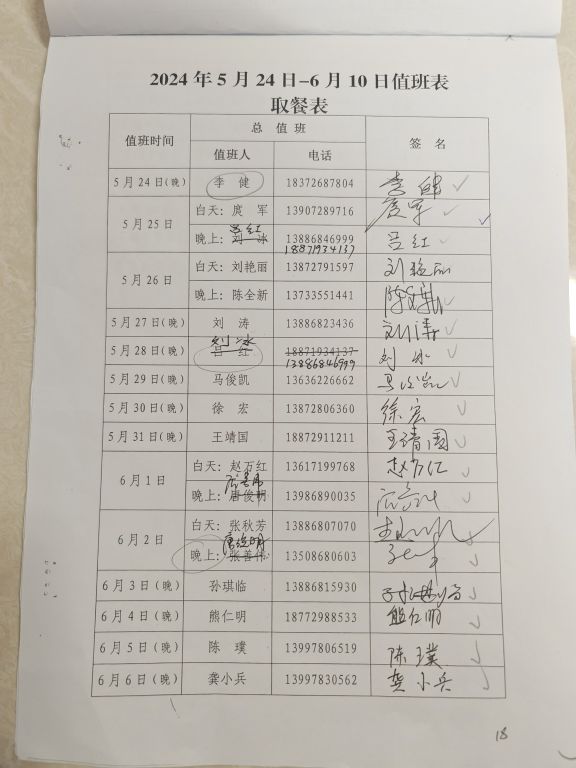 2024 年 5 月 24 日-6 月 10 日值班表
取餐表
值班时间 总 值 班 签 名
值班人 电话
5 月 24 日(晚) 李 健 18372687804 李健
5 月 25 日 白天: 庹 军 13907289716 庹军
吕红
晚上: 刘 冰 13886846999 吕红
18871934137
5 月 26 日 白天: 刘艳丽 13872791597 刘艳丽
晚上: 陈全新 13733551441
5 月 27 日(晚) 刘 涛 13886823436 刘涛
刘冰
5 月 28 日(晚) 吕 红 18871934137 刘冰
13886846999
5 月 29 日(晚) 马俊凯 13636226662 马俊凯
5 月 30 日(晚) 徐 宏 13872806360 徐宏
5 月 31 日(晚) 王靖国 18872911211 王靖国
6 月 1 日 白天: 赵万红 13617199768 赵万红
晚上: 唐俊明 13986890035
6 月 2 日 白天: 张秋芳 13886807070
唐俊明
晚上: 张善伟 13508680603
6 月 3 日(晚) 孙琪临 13886815930 孙琪临
6 月 4 日(晚) 熊仁明 18772988533 熊仁明
6 月 5 日(晚) 陈 璞 13997806519 陈璞
6 月 6 日(晚) 龚小兵 13997830562 龚小兵
18